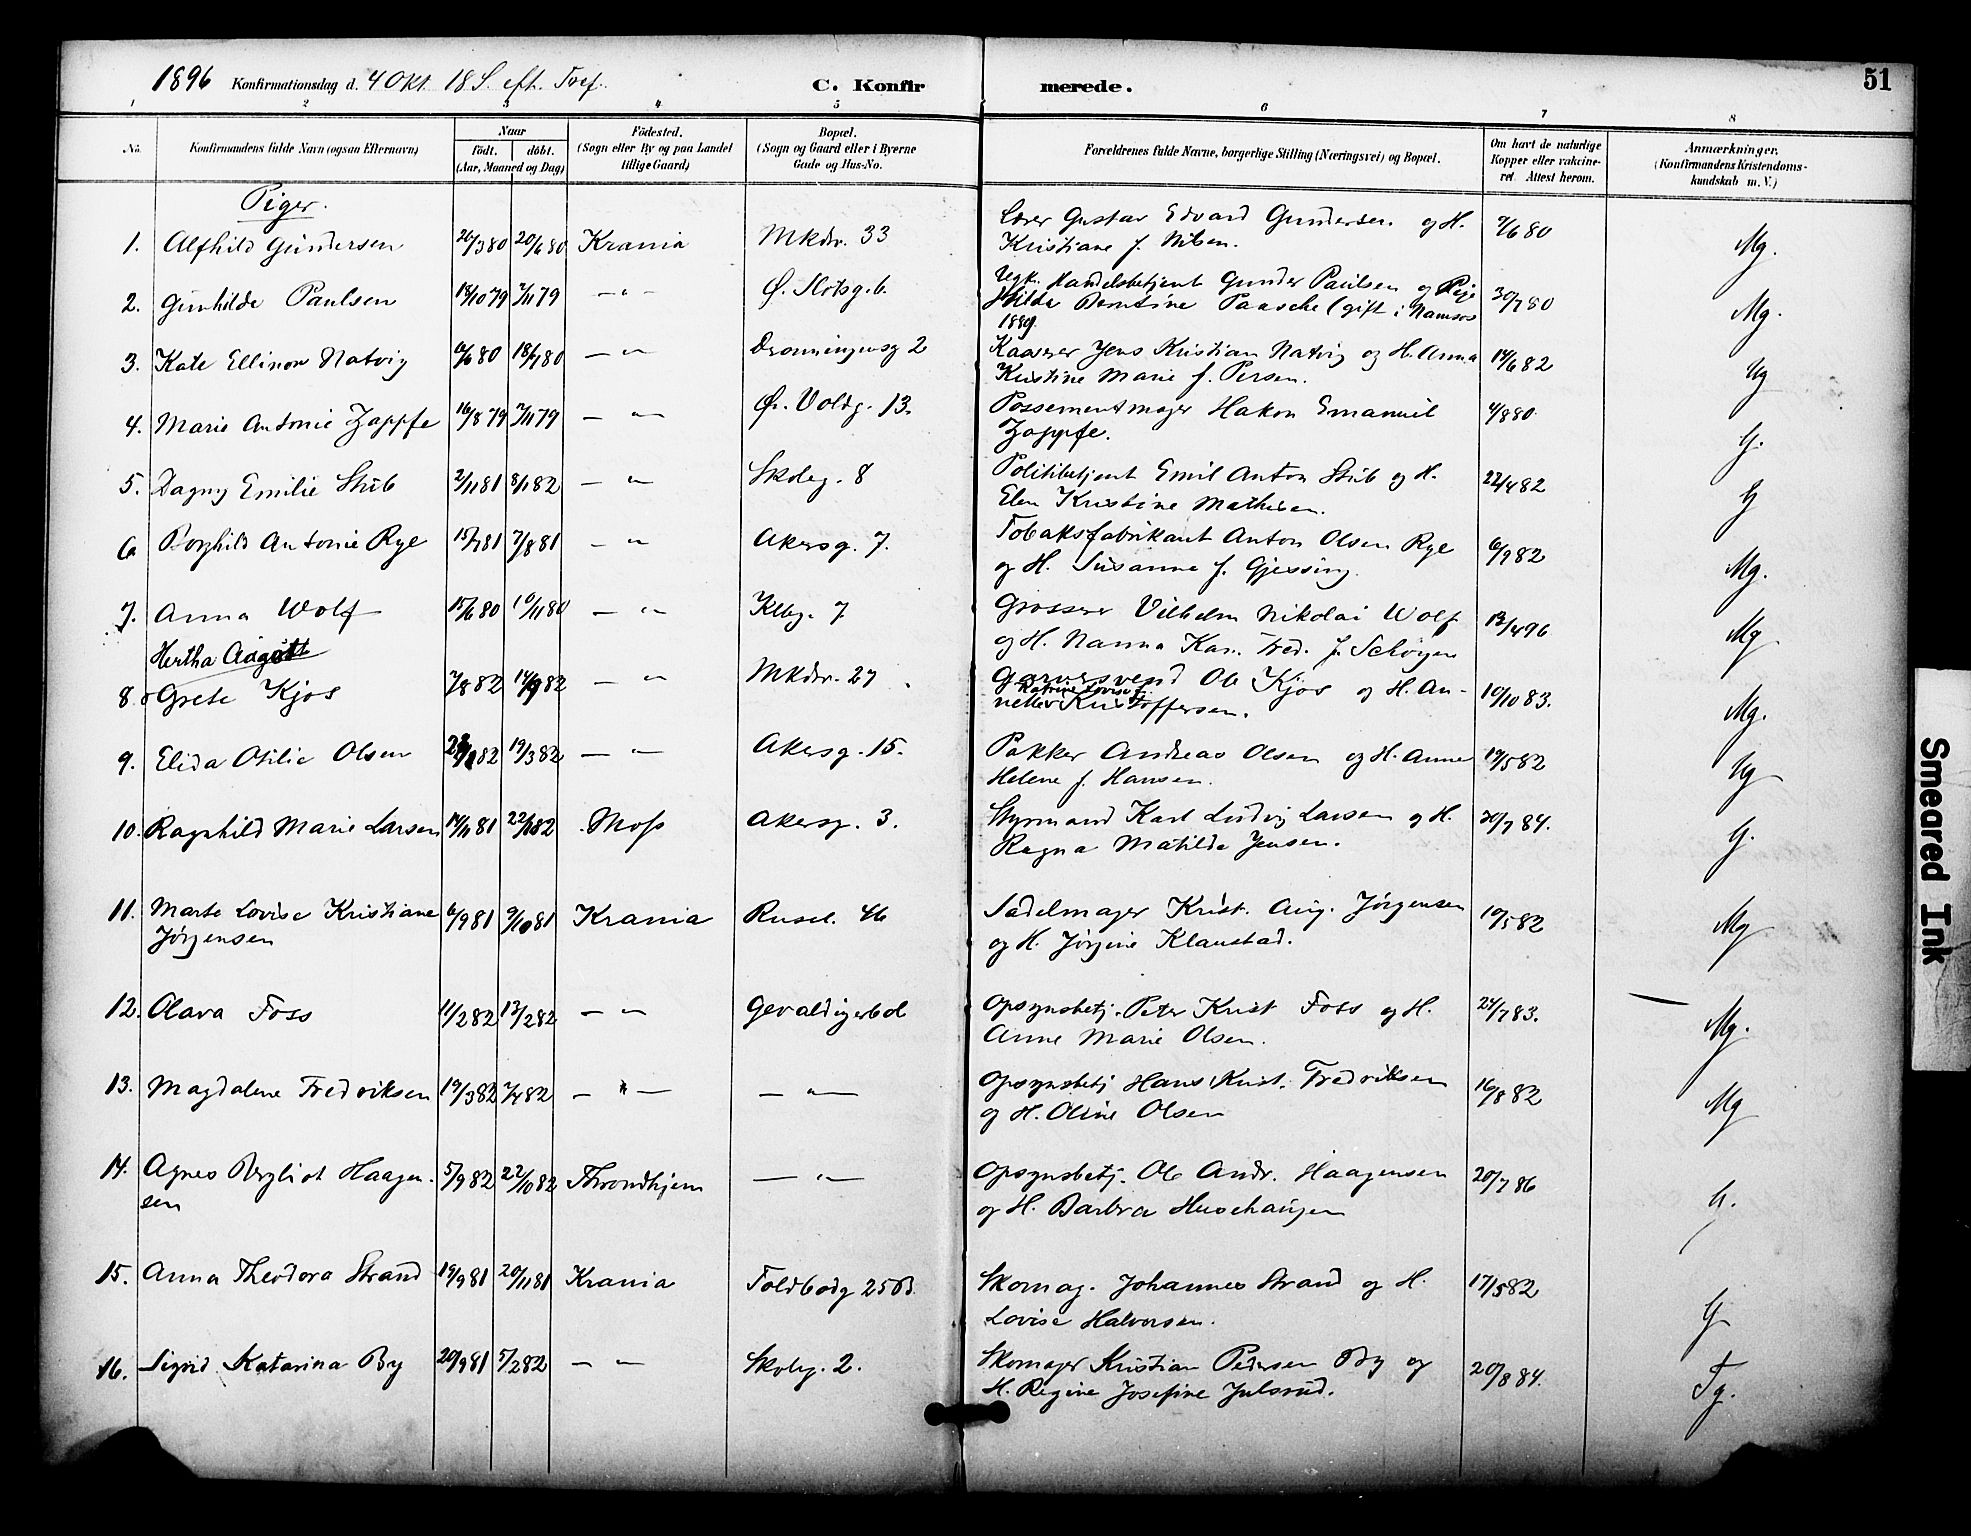 1896 Konfirmationsdag d. 4 Okt. 18 S. eft. Tref. C. Konfirmerede. 51
1 2 3 4 5 6 7 8
No. Konfirmandens fulde Navn (ogsaa Efternavn) Naar født. døbt. (Aar, Maaned og Dag) Födested. (Sogn eller By og paa Landet tillige Gaard) Bopæl. (Sogn og Gaard eller i Byerne Gade og Hus-No. Forældrenes fulde Navne, borgerlige Stilling (Næringsvei) og Bopæl. Om havt de naturlige Kopper eller vakcineret. Attest herom. Anmærkninger. (Konfirmandens Kristendomskundskab m. V.)
Piger.
1. Alfhild Gundersen 26/3 80 20/6 80 Krania Mkdv. 33 Lærer Gustav Edvard Gundersen og H. 7/6 80 Mg.
Kristiane f. Nilsen.
2. Gunhilde Paulsen 18/10 79 2/11 79 — " — Ø. Slotsg. 6. Ugk. Handelsbetjent Gunder Paulsen og Pige 30/7 80 Mg.
Hilda Berntine Paasche (gift i Namsos
1889.
3. Kate Ellinor Natvig 6/6 80 18/7 80 — " — Dronningensg 2 Kasserer Jens Kristian Natvig og H. Anna 14/6 82 Ug
Kristine Marie f. Persen.
4. Marie Antonie Zappfe 16/8 79 2/11 79 — " — Ø. Voldg. 13. Possementmager Hakon Emanuel 4/8 80 G.
Zappfe.
5. Dagny Emilie Stub 2/11 81 8/1 82 — " — Skoleg. 8 Politibetjent Emil Anton Stub og H. 22/4 82 G
Elen Kristine Mathisen.
6 Borghild Antonie Rye 15/7 81 7/8 81 — " — Akersg. 7. Tobaksfabrikant Anton Olsen Rye 6/9 82 Mg.
og H. Susanne f. Gjessing.
7. Anna Wolf 15/6 80 10/11 80 — " — Klbg. 7 Grosserer Vilhelm Nikolai Wolf 13/4 96 Mg
og H. Nanna Kar. Fred. f. Schøyen
Hertha Aagott
8. Grete Kjos 7/8 82 14/9 82 — " — Mkdv. 27 Garversvend Ole Kjos og H. An- 10/10 83. Mg.
Katrine Lovise f.
nette Kristoffersen.
9. Elida Otilie Olsen 28/1 82 19/3 82 — " — Akersg. 15. Pakker Andreas Olsen og H. Anne 19/5 82 Ug
Helene f. Hansen.
10. Ragnhild Marie Larsen 14/11 81 22/1 82 Moss Akersg. 3. Styrmand Karl Ludvig Larsen og H. 20/7 84. G.
Ragna Matilda Jensen.
11. Marte Lovise Kristiane 6/9 81 9/10 81 Krania Rusel. 46 Sadelmager Krist. Aug. Jørgensen 10/5 82 Mg
Jørgensen og H. Jørgine Klaustad.
12. Olava Foss 11/2 82 13/2 82 — " — Gevaldigerbol Opsynsbetj. Peter Krist Foss og H. 24/7 83. Mg.
Anne Marie Olsen.
13. Magdalene Fredriksen 19/3 82 7/4 82 — " — — " — Opsynsbetj Hans Krist. Fredriksen 16/8 82 Mg
og H. Oline Olsen
14. Agnes Bergliot Haagen- 5/9 82 22/10 82 Throndhjem — " — Opsynsbetj. Ole Andr. Haagensen 20/7 86 G.
sen og H. Barbra Husehaugen
15. Anna Theodora Strand 19/9 81 20/11 81 Krania Toldbodg 25 B. Skomag. Johannes Strand og H. 17/5 82 G
Lovise Halvorsen.
16. Sigrid Katarina By 20/9 81 5/2 82 — " — Skoleg. 2. Skomager Kristian Pedersen By og 20/8 84. Tg.
H. Regine Josefine Julsrud.
Smeared Ink